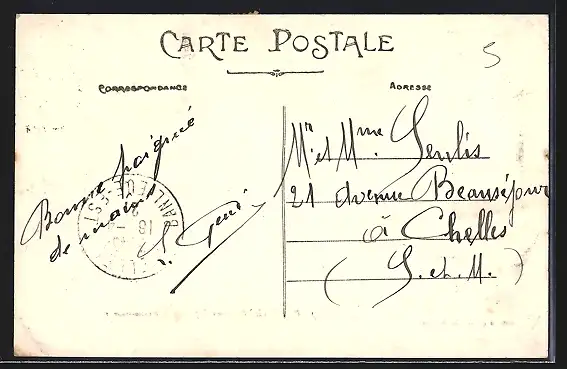 CARTE POSTALE
5
CORRESPONDANCE
ADRESSE
Bonne poignée
de main
BANLIEUE EST
18
Mr et Mme Senlis
21 avenue Beauséjour
à Chelles
(S. et M.)